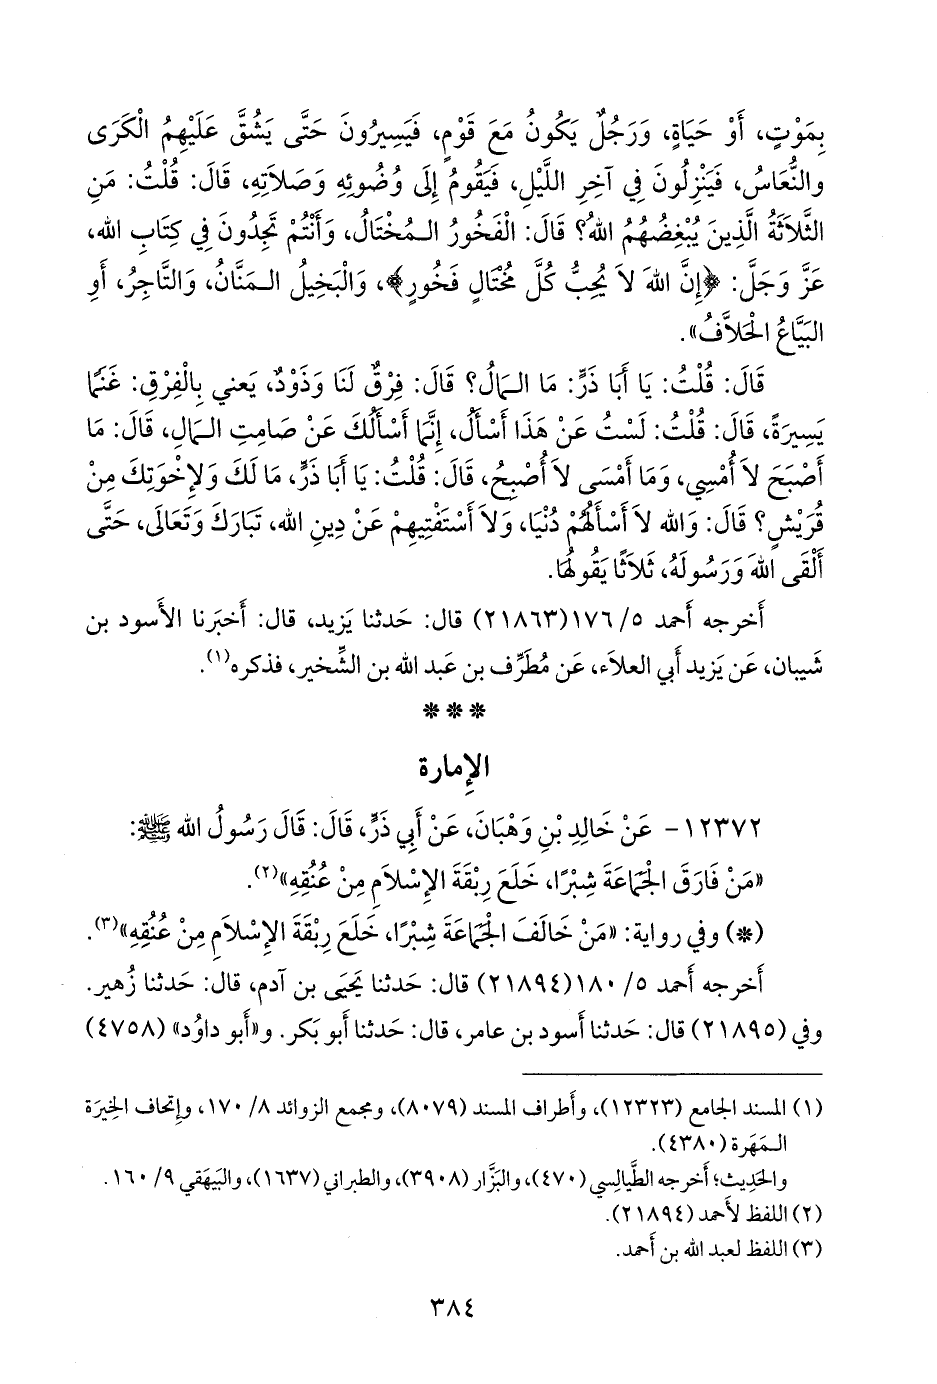 بِمَوْتٍ، أَوْ حَيَاةٍ، وَرَجُلٌ يَكُونُ مَعَ قَوْمٍ، فَيَسِيرُونَ حَتَّى يَشُقَّ عَلَيْهِمُ الْكَرَى
والنُّعَاسُ، فَيَنْزِلُونَ فِي آخِرِ اللَّيْلِ، فَيَقُومُ إِلَى وُضُوئِهِ وَصَلاَتِهِ، قَالَ: قُلْتُ: مَنِ
الثَّلاَثَةُ الَّذِينَ يُبْغِضُهُمُ اللهُ؟ قَالَ: الْفَخُورُ الـمُخْتَالُ، وَأَنْتُمْ تَجِدُونَ فِي كِتَابِ الله،
عَزَّ وَجَلَّ: ﴿إِنَّ اللهَ لاَ يُحِبُّ كُلَّ مُخْتَالٍ فَخُورٍ﴾، وَالْبَخِيلُ الـمَنَّانُ، وَالتَّاجِرُ، أَوِ
البَيَّاعُ الْحَلاَّفُ».
قَالَ: قُلْتُ: يَا أَبَا ذَرٍّ: مَا الـمَالُ؟ قَالَ: فِرْقٌ لَنَا وَذَوْدٌ، يَعني بِالْفِرْقِ: غَنَمًا
يَسِيرَةً، قَالَ: قُلْتُ: لَسْتُ عَنْ هَذَا أَسْأَلُ، إِنَّمَا أَسْأَلُكَ عَنْ صَامِتِ الـمَالِ، قَالَ: مَا
أَصْبَحَ لاَ أُمْسِي، وَمَا أَمْسَى لاَ أُصْبِحُ، قَالَ: قُلْتُ: يَا أَبَا ذَرٍّ، مَا لَكَ وَلإِخْوَتِكَ مِنْ
قُرَيْشٍ؟ قَالَ: وَالله لاَ أَسْأَلُهُمْ دُنْيَا، وَلاَ أَسْتَفْتِيهِمْ عَنْ دِينِ الله، تَبَارَكَ وَتَعَالَى، حَتَّى
أَلْقَى اللهَ وَرَسُولَهُ، ثَلاَثًا يَقُولُهَا.
أَخرجه أَحمد ٥/ ١٧٦(٢١٨٦٣) قال: حَدثنا يَزيد، قال: أَخبَرنا الأَسود بن
شَيبان، عَن يَزيد أَبي العلاَء، عَن مُطَرِّف بن عَبد الله بن الشِّخير، فذكره(١).
* * *
الإِمارة
١٢٣٧٢- عَنْ خَالِدِ بْنِ وَهْبَانَ، عَنْ أَبِي ذَرٍّ، قَالَ: قَالَ رَسُولُ الله ﷺ:
«مَنْ فَارَقَ الْجَمَاعَةَ شِبْرًا، خَلَعَ رِبْقَةَ الإِسْلاَمِ مِنْ عُنُقِهِ»(٢).
(*) وفي رواية: «مَنْ خَالَفَ الْجَمَاعَةَ شِبْرًا، خَلَعَ رِبْقَةَ الإِسْلاَمِ مِنْ عُنُقِهِ»(٣).
أَخرجه أَحمد ٥/ ١٨٠(٢١٨٩٤) قال: حَدثنا يَحيَى بن آدم، قال: حَدثنا زُهير.
وفي (٢١٨٩٥) قال: حَدثنا أَسود بن عامر، قال: حَدثنا أَبو بَكر. و«أَبو داوُد» (٤٧٥٨)
(١) المسند الجامع (١٢٣٢٣)، وأَطراف المسند (٨٠٧٩)، ومجمع الزوائد ٨/ ١٧٠، وإِتحاف الخِيرَة
الـمَهَرة (٤٣٨٠).
والحَدِيث؛ أَخرجه الطَّيالِسي (٤٧٠)، والبَزَّار (٣٩٠٨)، والطبراني (١٦٣٧)، والبَيهَقي ٩/ ١٦٠.
(٢) اللفظ لأَحمد (٢١٨٩٤).
(٣) اللفظ لعبد الله بن أَحمد.
٣٨٤